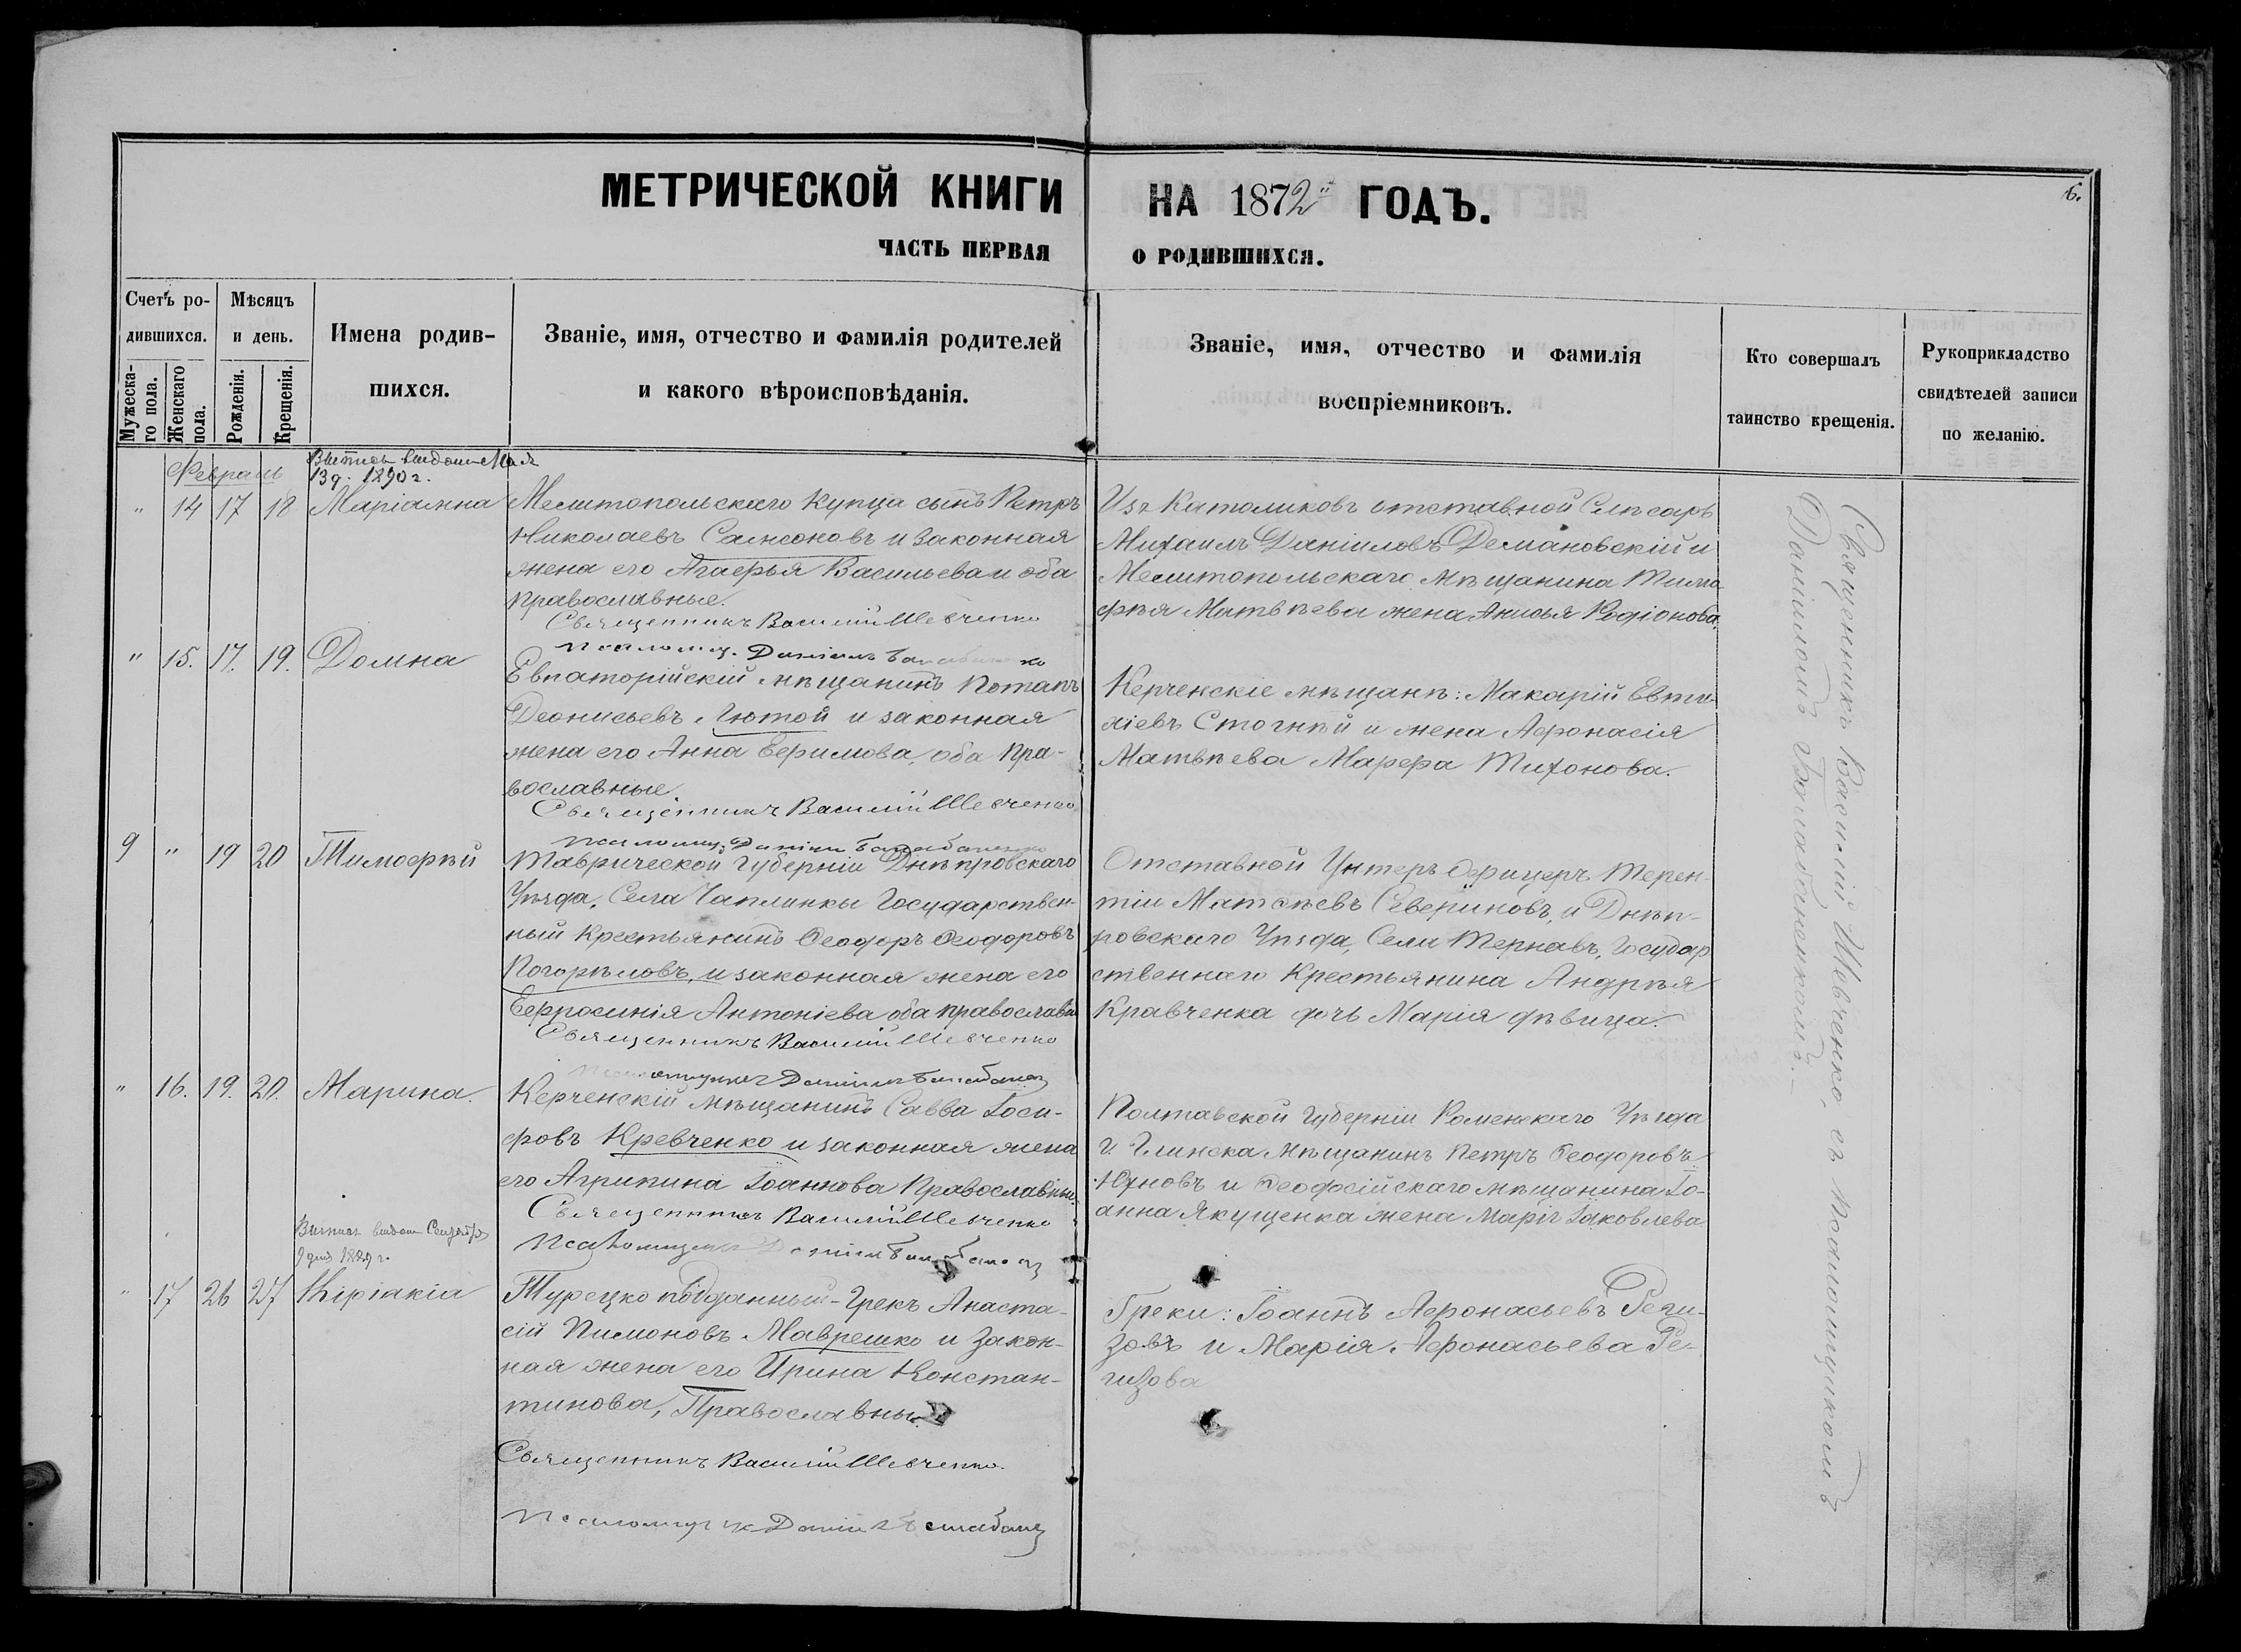 МЕТРИЧЕСКОЙ КНИГИ НА 1872 ГОДЪ.
6.
ЧАСТЬ ПЕРВАЯ О РОДИВШИХСЯ.
Счетъ ро-
дившихся.
Мужеска-
го пола.
Женскаго
пола.
Мѣсяцъ
и день.
Рожденія.
Крещенія.
Имена родив-
шихся.
Званіе, имя, отчество и фамилія родителей
и какого вѣроисповѣданія.
Званіе, имя, отчество и фамилія
воспріемниковъ.
Кто совершалъ
таинство крещенія.
Рукоприкладство
свидѣтелей записи
по желанію.
Февраль
Выпись выдана Мая
13 д. 1890 г.
" 14 17 18 Маріанна
Мелитопольскаго Купца сынъ Петръ
Николаевъ Самсоновъ и законная
жена его Агафья Васильева и оба
православные.
Священникъ Василій Шевченко
Псаломщ. Даніилъ
Изъ Католиковъ отставной Слѣсарь
Михаилъ Даніиловъ Демановскій и
Мелитопольскаго Мѣщанина Тимо-
фѣя Матвѣева жена Анисья Родіонова.
" 15. 17. 19. Домна
Евпаторійскій мѣщанинъ Потапъ
Деонисьевъ Лютой и законная
жена его Анна Ефимова, оба пра-
вославные.
Священникъ Василій Шевченко
Псаломщ. Даніилъ Балабаненко
Керченскіе мѣщане: Макарій Евти-
хіевъ Стогнѣй и жена Афонасія
Матвѣева Марфа Тихонова.
9 " 19 20 Тимофѣй
Таврической Губерніи Днѣпровскаго
Уѣзда, Села Чаплинки Государствен-
ный Крестьянинъ Феодоръ Феодоровъ
Погорѣловъ, и законная жена его
Ефросинія Антоніева оба православн
Священникъ Василій Шевченко
Даніилъ
Отставной Унтеръ Офицеръ Терен-
тій Матвѣевъ Севериновъ, и Днѣп-
ровскаго Уѣзда, Села Тернавъ, Государ
ственнаго Крестьянина Андрѣя
Кравченка дочь Марія дѣвица.
" 16. 19. 20. Марина.
Керченскій мѣщанинъ Савва Іоси-
фовъ Кревченко и законная жена
его Агрипина Іоаннова Православные.
Священникъ Василій Шевченко
Псаломщикъ Даніилъ
Полтавской Губерніи Роменскаго Уѣзда
г. Глинска Мѣщанинъ Петръ Феодоровъ
Юхновъ и Феодосійскаго мѣщанина Іо-
анна Якущенка жена Марія Іаковлева
Выпись выдана
1889 г.
" 17 26 27 Кіріакіа
Турецко подданный-Грекъ Анаста-
сій Пимоновъ Маврешко и закон-
ная жена его Ирина Констан-
тинова, Православны
Священникъ Василій Шевченко.
Псаломщикъ Даніилъ
Греки: Іоаннъ Афонасьевъ Реги-
зовъ и Марія Афонасьева Ре-
гизова
Священникъ Василій Шевченко, съ Псаломщикомъ
Даніиломъ Балабаненкомъ.-